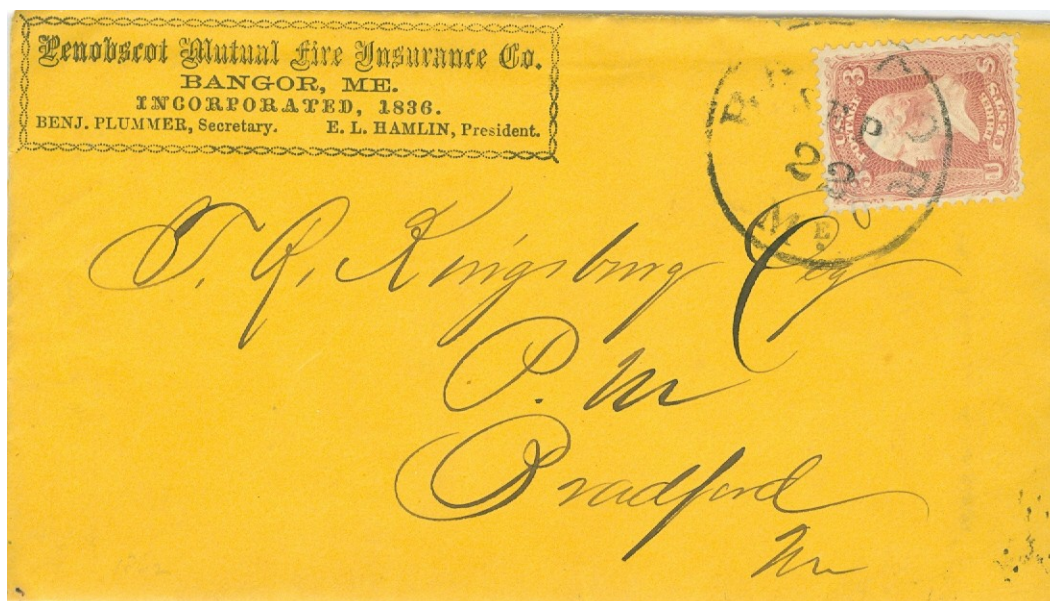 Penobscot Mutual Fire Insurance Co.
BANGOR, ME.
INCORPORATED, 1836.
BENJ. PLUMMER, Secretary. E. L. HAMLIN, President.
22
ME.
3 3
U S
T. R. Kingsbury Esq
P. M
Bradford
Me